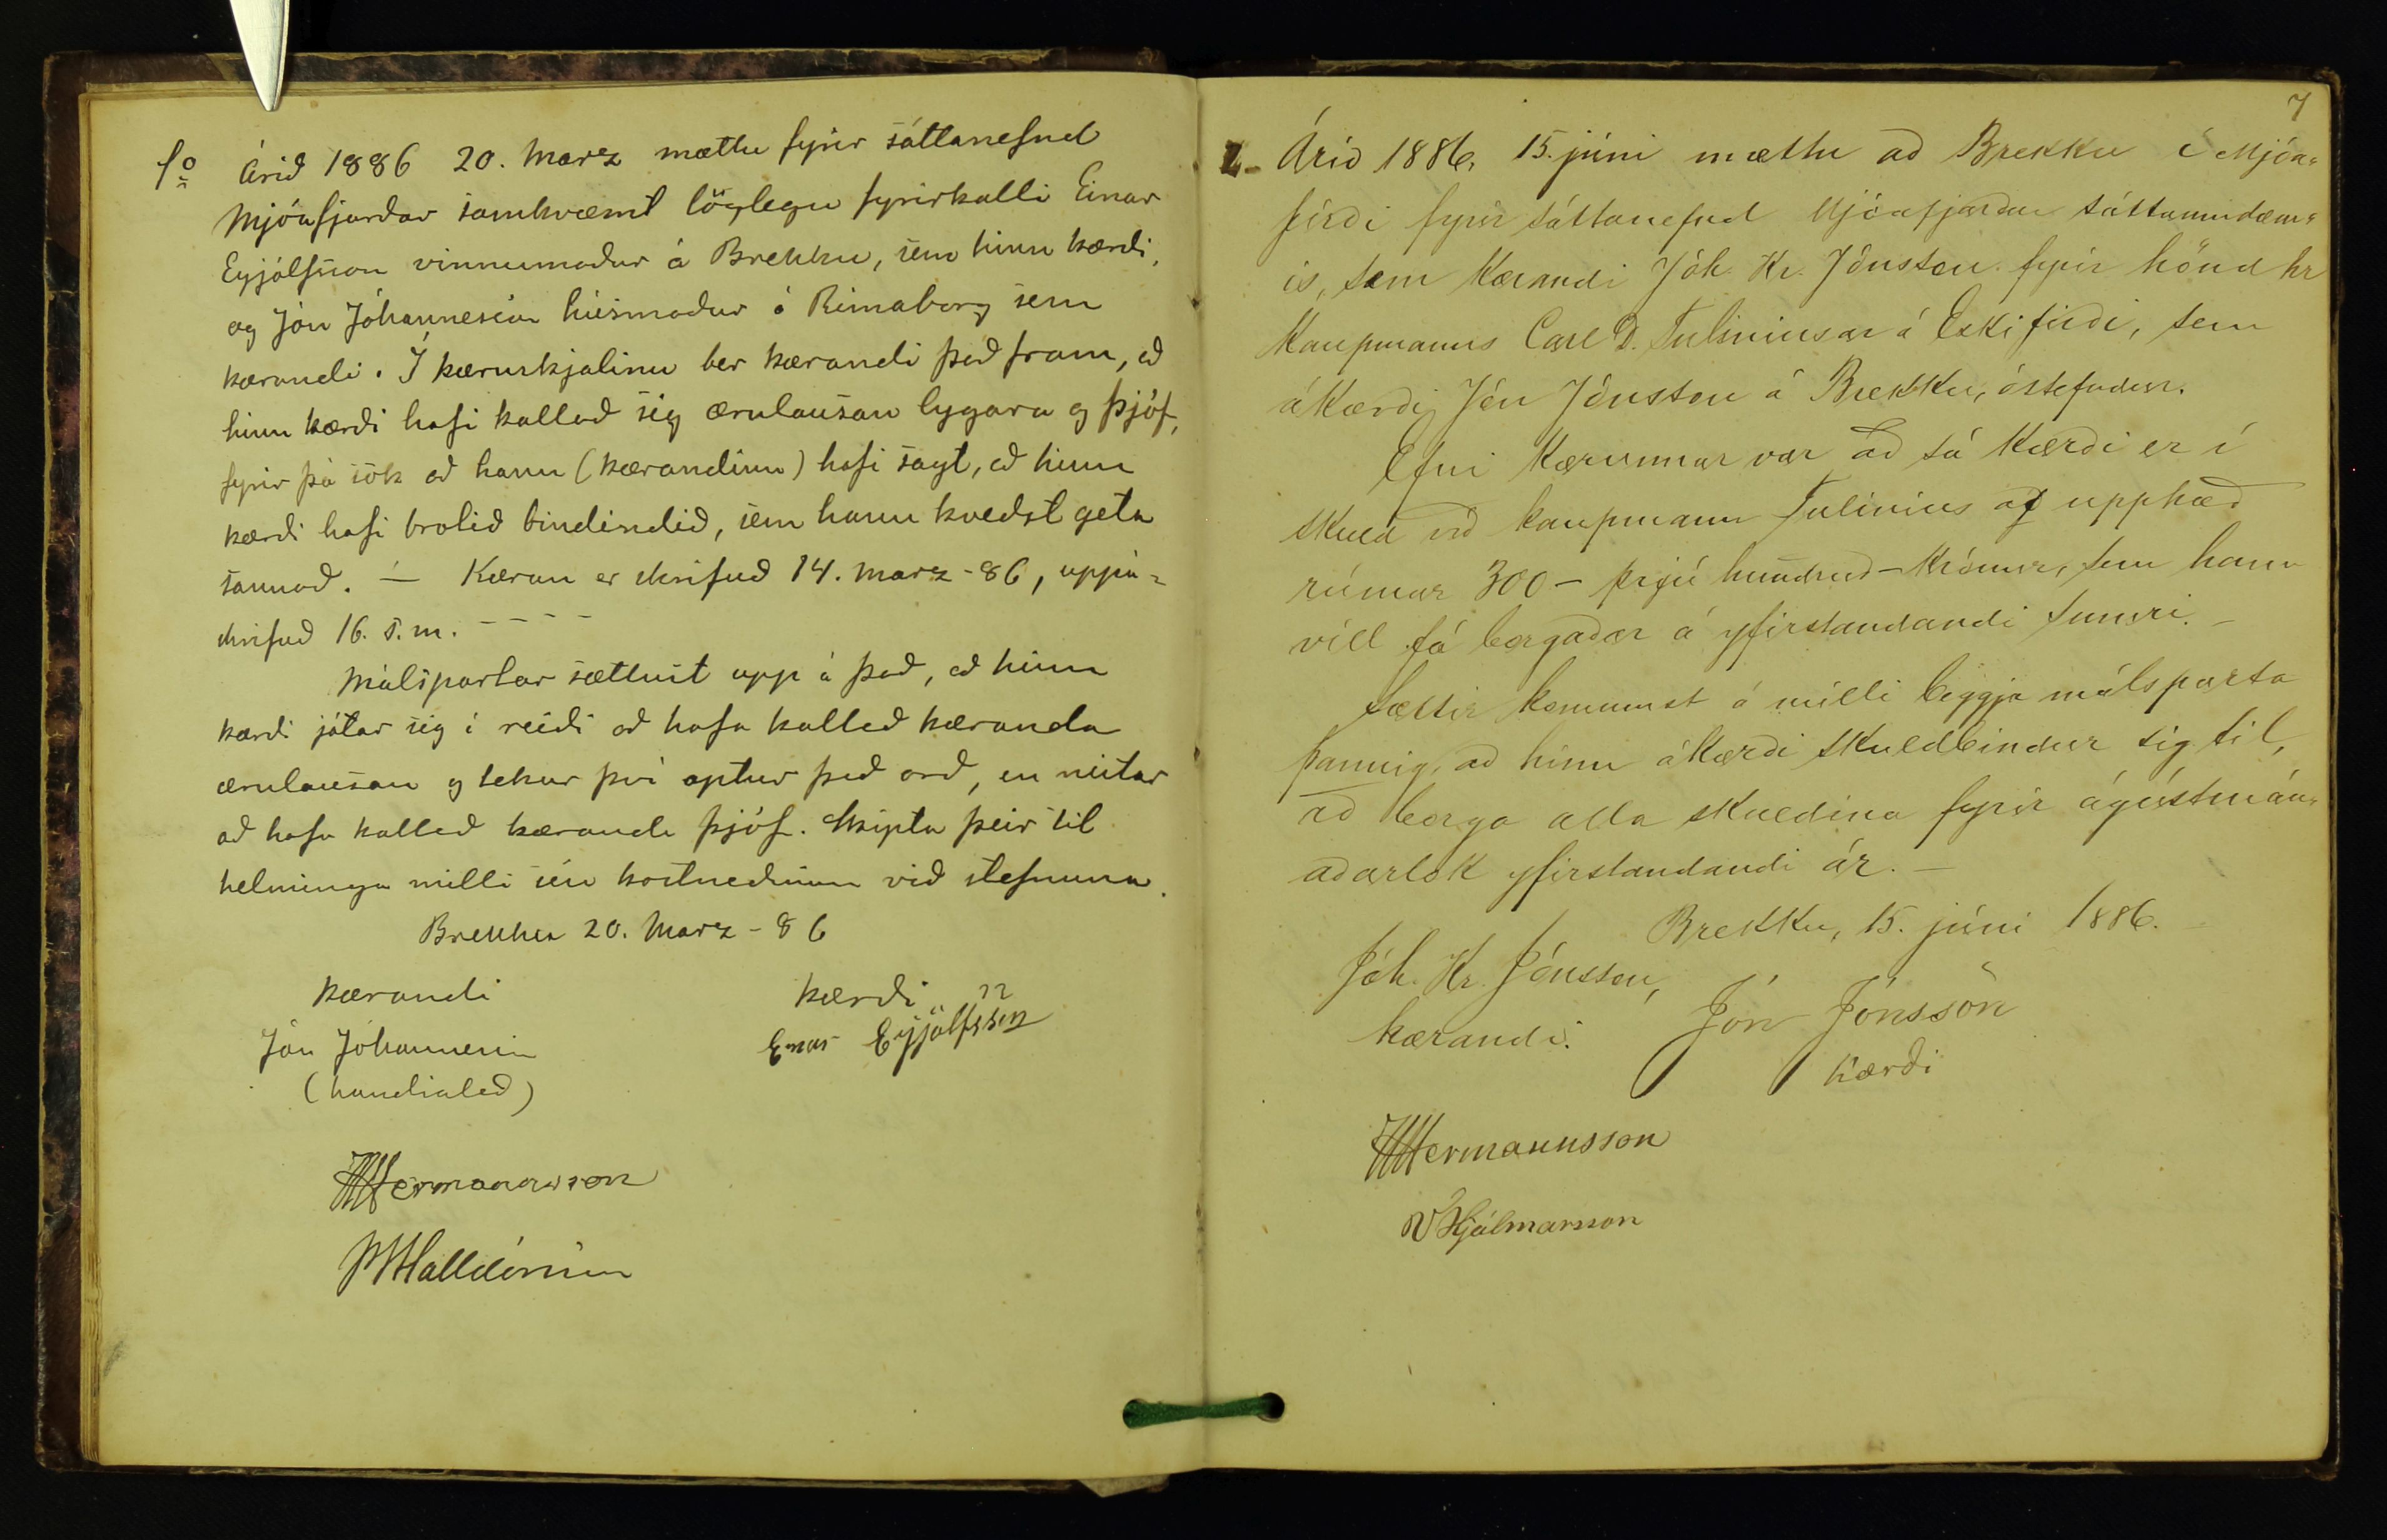 1o Árið 1886 20. Marz mættu fyrir sáttanefnd
Mjóafjarðar samkvæmt löglegu fyrirkalli Einar
Eyjólfsson vinnumaður á Brekku, sem hinn kærði,
og Jón Jóhannesson húsmaður á Rimaborg sem
kærandi. Í kæruskjalinu ber kærandi það fram, að
hinn kærði hafi kallað sig ærulausan lygara og þjóf,
fyrir þá sök að hann (kærandinn) hafi sagt, að hinn
kærði hafi brotið bindindið, sem hann kveðst geta
sannað. — Kæran er skrifuð 14. marz - 86, uppá-
skrifuð 16. s. m. - - - -
Málspartar sættust upp á það, að hinn
kærði játar sig í reiði að hafa kallað kæranda
ærulausan og tekur því aptur það orð, en neitar
að hafa kallað kæranda þjóf. Skipta þeir til
helminga milli sín kostnaðinum við stefnuna.
Brekku 20. Marz - 86
kærandi kærði
Jón Jóhannesson Einar Eyjólfsson
(handsalað)
HHermannsson
Halldórsson
7
2. Árið 1886, 15. júni mættu að Brekku í Mjóa-
firði fyrir sáttanefnd Mjóafjarðar sáttaumdæm-
is, sem kærandi Jóh. Kr. Jónsson fyrir hönd hr
kaupmanns Carl D. Tuliniusar á Eskifirði, sem
ákærði Jón Jónsson á Brekku, óstefndur.
Efni kærunnar var að sá kærði er í
skuld við kaupmann Tulinius að upphæð
rúmar 300 - þrjú hundruð - krónur, sem hann
vill fá borgaðar á yfirstandandi sumri. -
Sættir komumst á milli beggja málsparta
þannig, að hinn ákærði skuldbindur sig til,
að borga alla skuldina fyrir ágústmán-
aðarlok yfirstandandi ár. —
Brekku, 15. júní 1886.
Jóh. Kr. Jónsson, Jón Jónsson
kærandi. kærði
HHermannsson
VHjálmarsson